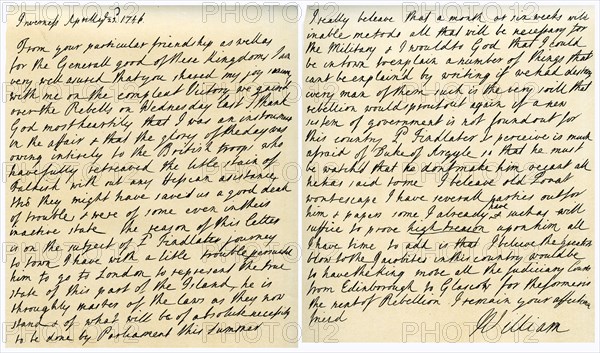 Inverness April ye 23d 1746.
From your particular friendship as well as
for the Generall good of these Kingdoms, I am
very well assured that you shared my joy
with me on the compleat Victory we gained
over the Rebells on Wednesday last I thank
God most heartily that I was an instrument
in the affair & that the glory of the day was
owing entirely to the British troops who
have fully retreaved the litle stain of
Falkirk with out any Hepsean asistance
tho they might have saved us a good deal
of trouble & were of some even in their
inactive state. The reason of this letter
is on the subject of Ld Findlaters journey
to town I have with a litle trouble perswaded
him to go to London to represent the true
state of this part of the Island, he is
thoughly master of the laws as they now
stand & of what will be of absolute necessity
to be done by Parliament this Summer
I really beleave that a month or six weeks will
inable me to do all that will be necessary for
the Military & I would to God that I could
be in town to explain a number of things that
cant be explain'd by writing if we had destroy
every man of them such is the very soil that
rebellion would sprout out again if a new
system of government is not found out for
this country Ld Findlater I perceive is much
afraid of Duke of Argyle so that he must
be watched that he dont make him recant all
he has said to me I beleave old Lovat
wont escape I have severall parties out for
him & papers some I already have & such as will
suffice to prove high treason upon him all
I have time to add is that I believe the greatest
blow to the Jacobites in this country would be
to have the king move all the judiciary courts
from Edinborough to Glascow for the
of Rebellion I remain your affectionate
friend
William
PHOTO12